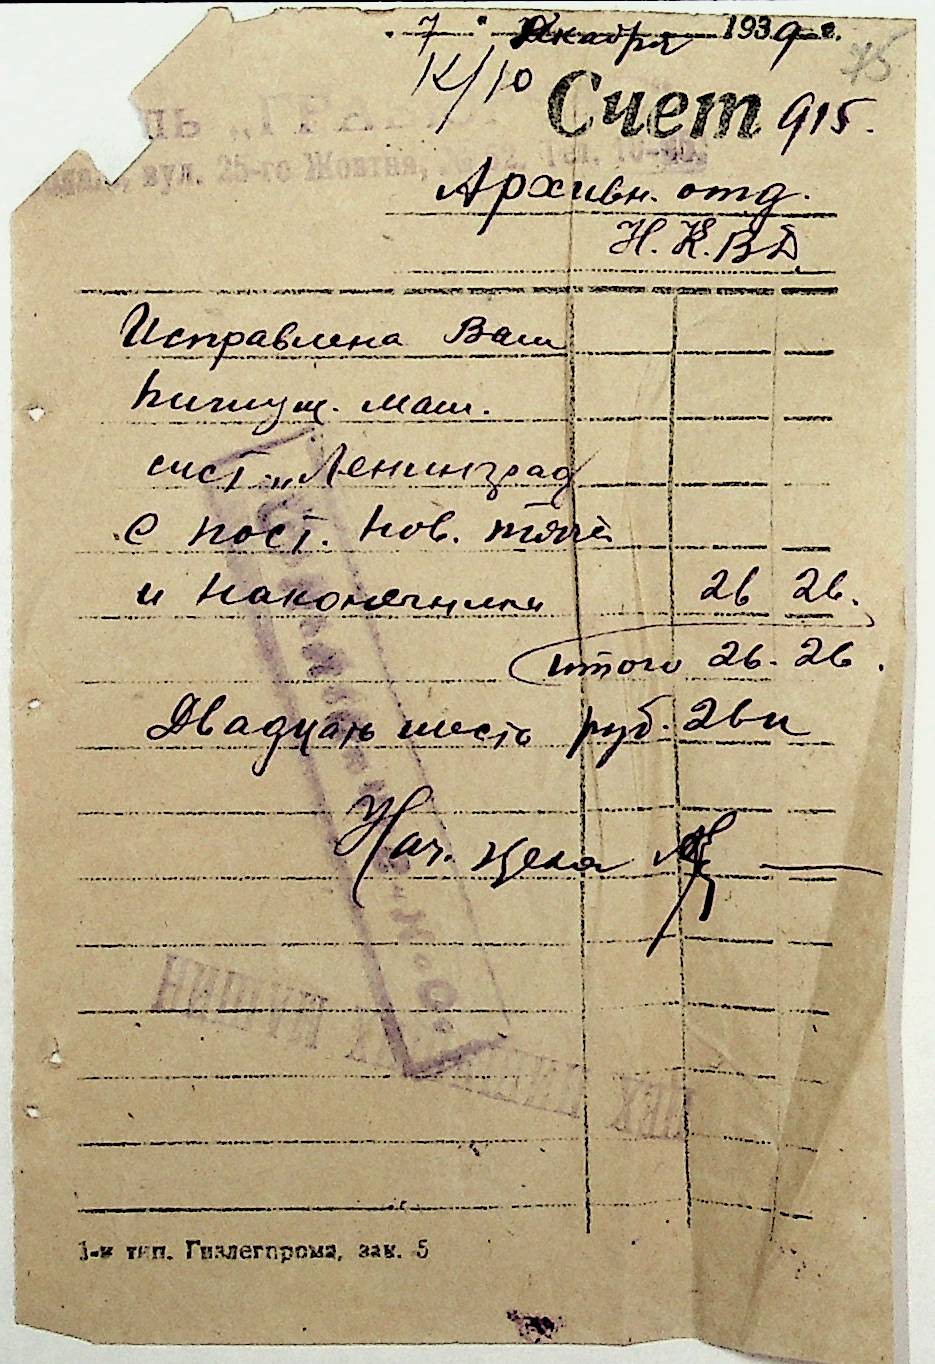 „7" декабря 1939 г.
75
К/10
Счет 915.
вул. 25-го Жовтня,
Архивн. отд.
Н.К.В.Д.
Исправлена Ваш
пишущ. маш.
сист. „Ленинград
с пост. нов.
и наконечники 26 26.
итого 26. 26.
Двадцать шесть руб. 26 к
Нач. цеха
1-я тип. Гизлегпрома, зак. 5